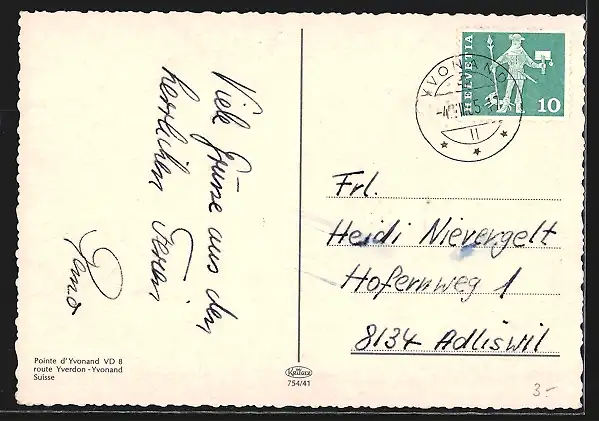 Viele Grüsse aus den
herrlichen Ferien
HELVETIA
10
YVONAND
Frl.
Heidi Nievergelt
Hofernweg 1
8134 Adliswil
Pointe d'Yvonand VD 8
route Yverdon-Yvonand
Suisse
754/41
3.-